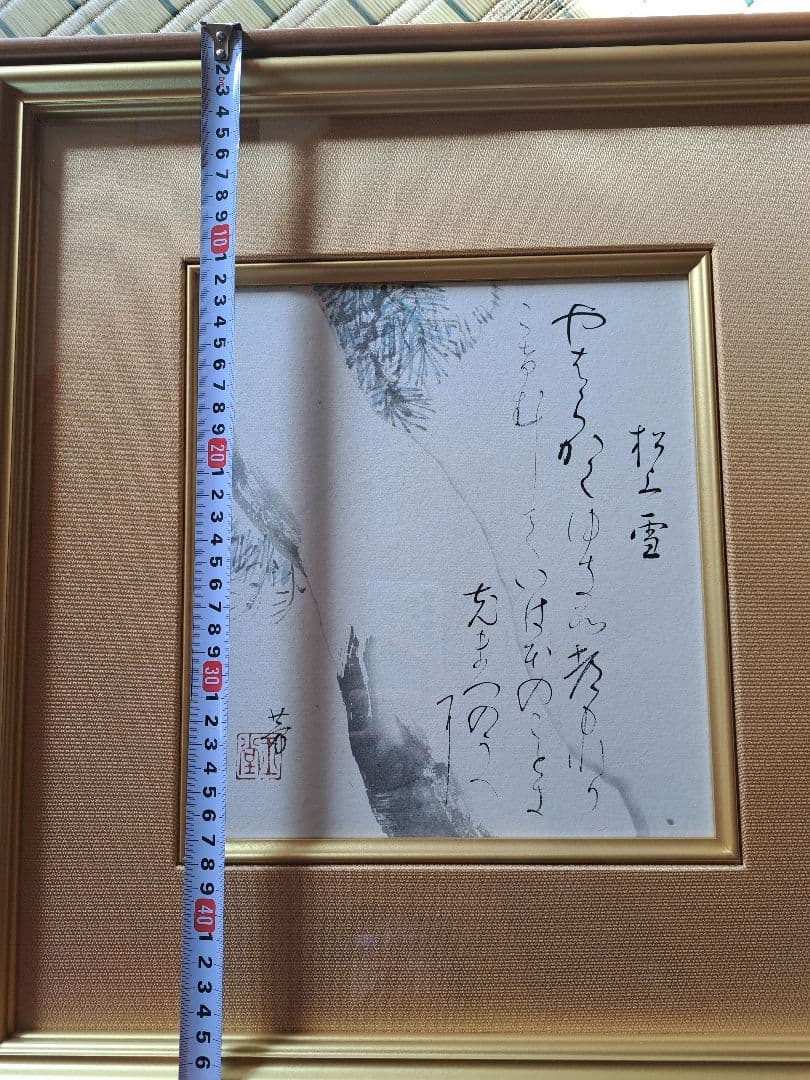 松上雪
やはらかくゆきそ都もれり
こけむしていはほのことき
老まつのうへ
に
玉堂
2 3 4 5 6 7 8 9 10 1 2 3 4 5 6 7 8 9 20 1 2 3 4 5 6 7 8 9 30 1 2 3 4 5 6 7 8 9 40 1 2 3 4 5 6